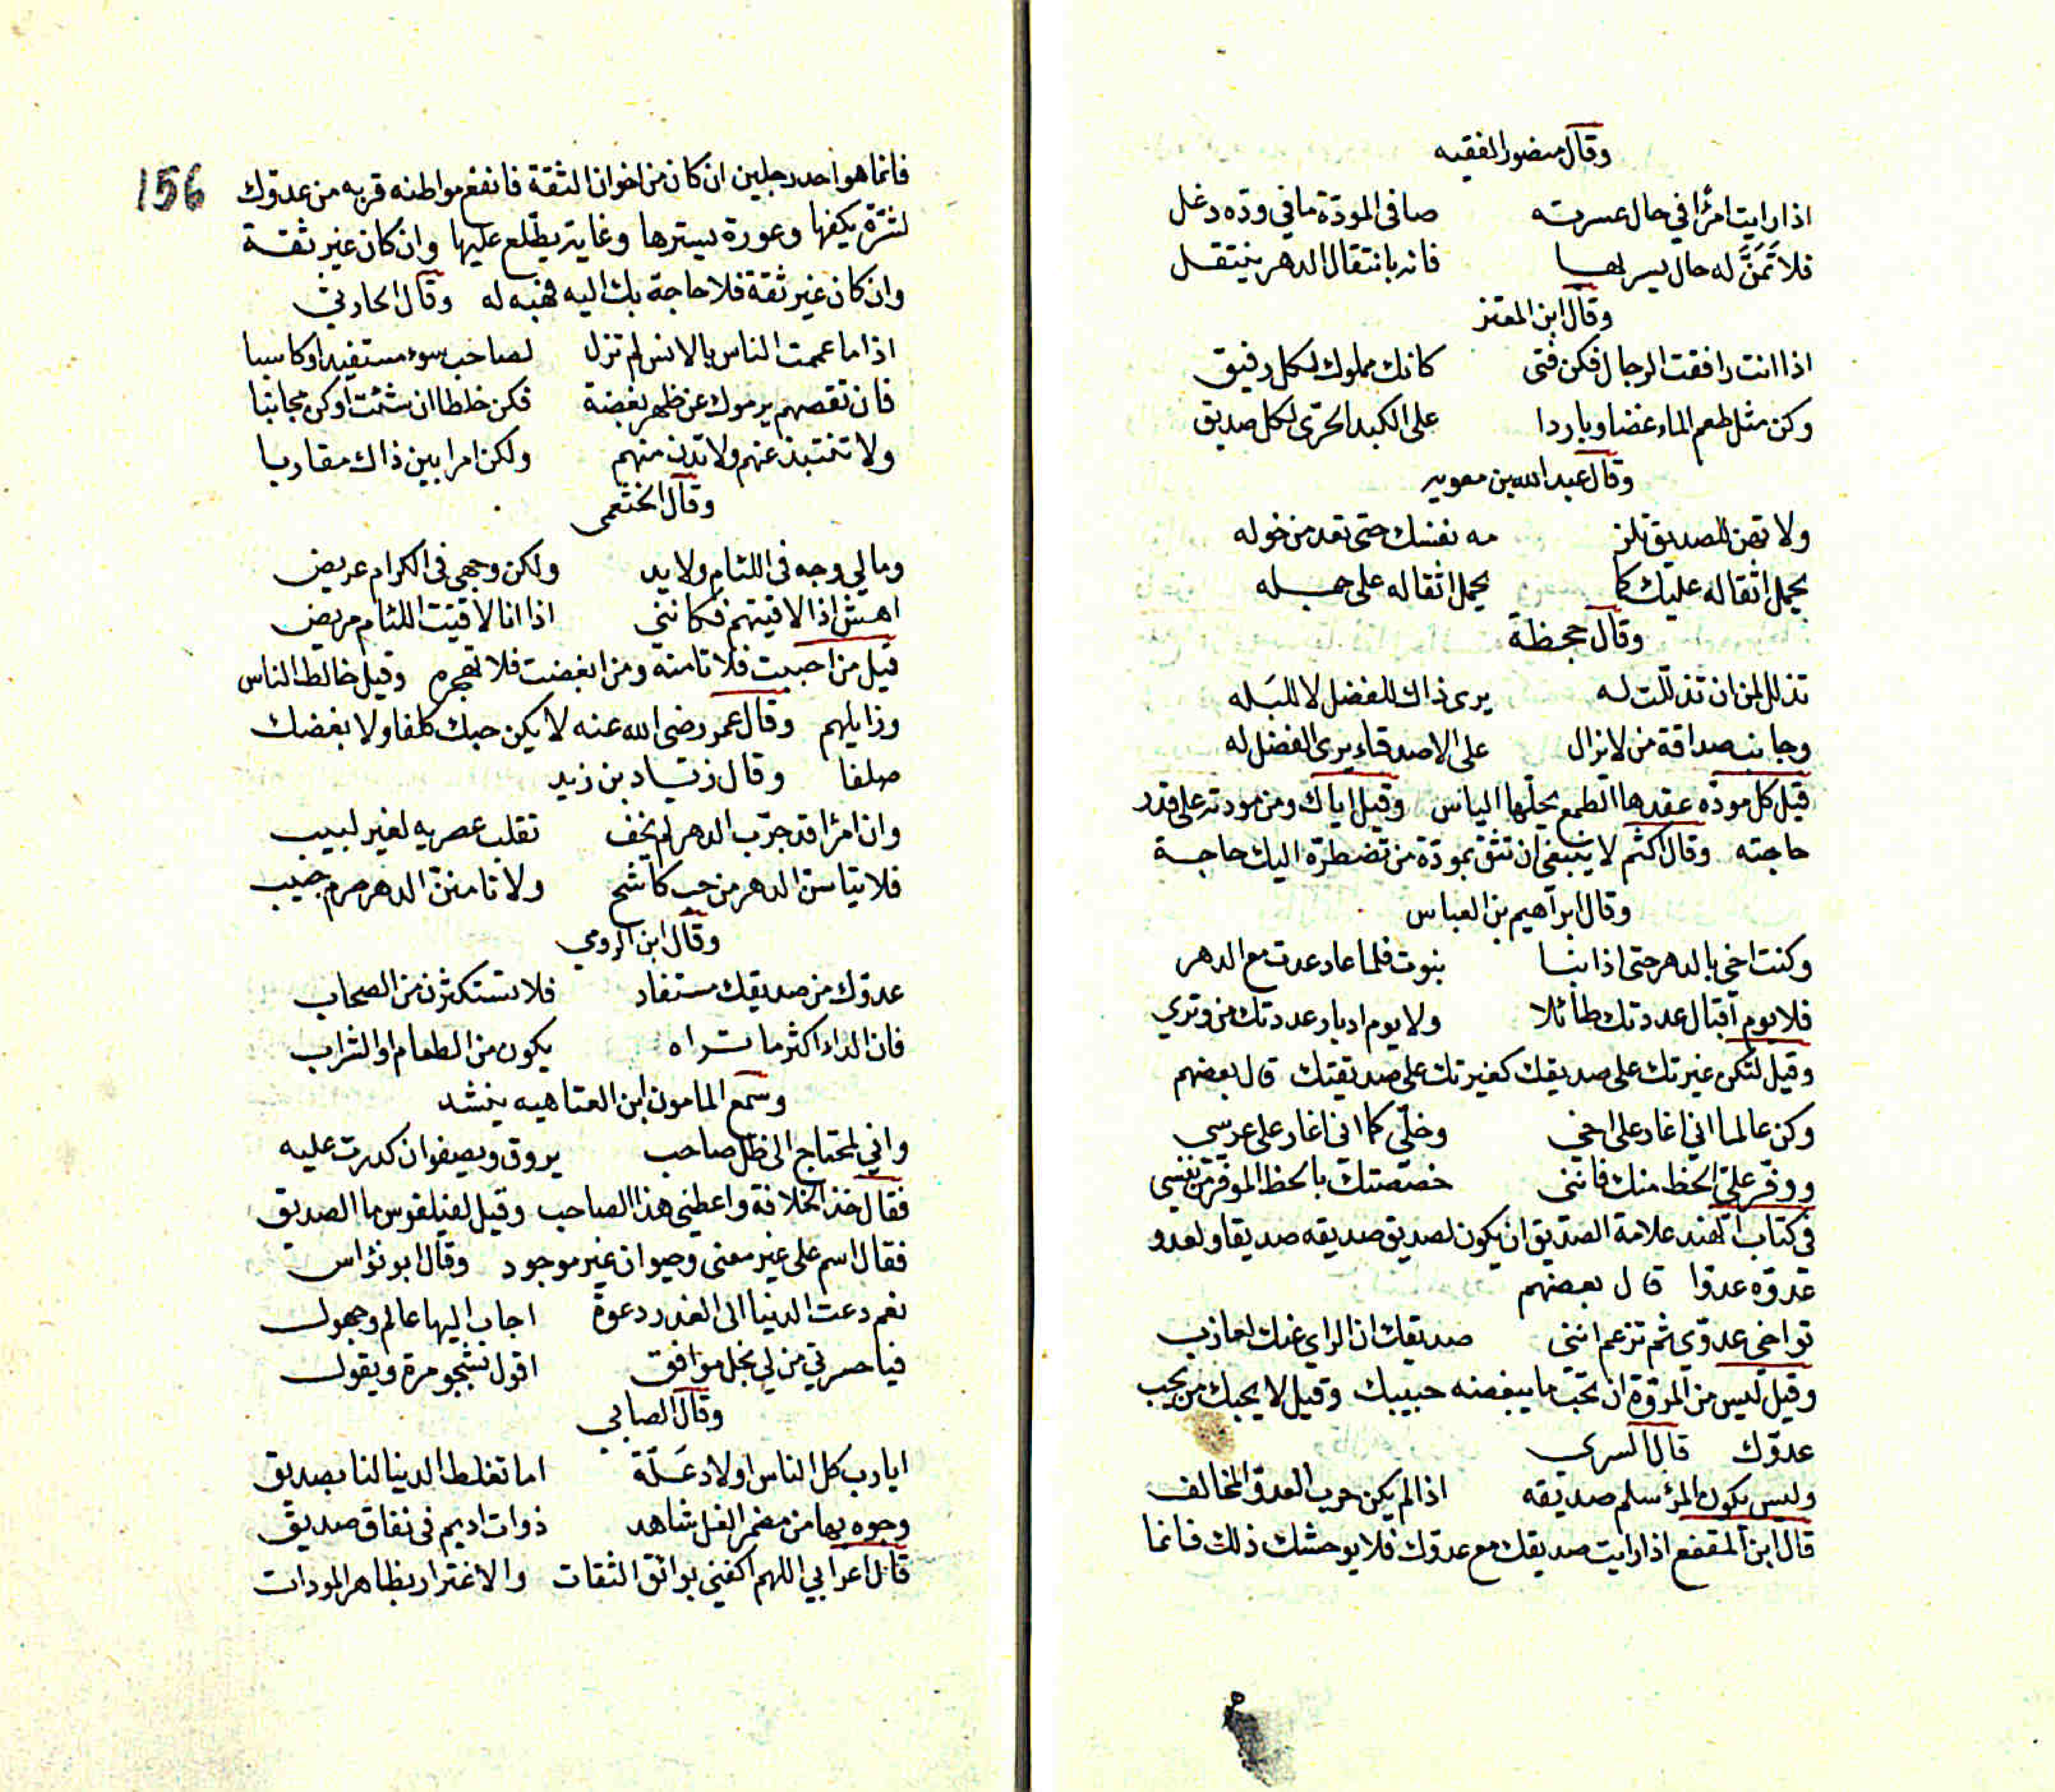 وقال منصور الفقيه
اذا رايت امرًا في حال عسرته صافى المودّة ما في ودّه دغل
فلا تَمَنَّ له حال يسر بها فانه بانتقال الدهر ينتقل
وقال ابن المعتز
اذا انت رافقت الرجال فكن فتى كانك مملوك لكل رفيق
وكن مثل طعم الماء غضا وباردا على الكبد الحرّى لكل صديق
وقال عبد الله بن معويه
ولا تهن للصديق تلز مه نفسك حتى تعد من خوله
يحمل اثقاله عليك كما يحمل اثقاله على جمله
وقال جحظة
تذلل لمن ان تذللت له يرى ذاك للفضل لا للبَله
وجانب صداقة من لا تزال على الاصدقاء يرى الفضل له
قيل كل مودّه عقدها الطمع يحلّها الياس وقيل اياك ومن مودته على قدر
حاجته وقال اكثم لا ينبغى ان تثق بمودّة من تضطرّه اليك حاجة
وقال ابراهيم بن العباس
وكنت اخي بالدهر حتى اذا نبا نبوت فلما عاد عدت مع الدهر
فلا يوم اقبال عددتك طائلا ولا يوم ادبار عددتك من وتري
وقيل لتكن غيرتك على صديقك كغيرتك على صديقتك قال بعضهم
وكن عالما اني اغار على اخي وخلّي كما اني اغار على عرسي
ووفّر عليّ الحظ منك فانني خصصتك بالحظ الموفّر من نفسي
في كتاب الهند علامة الصديق ان يكون لصديق صديقه صديقا ولعدو
عدوّه عدوّا قال بعضهم
تواخي عدوّي ثم تزعم انني صديقك ان الراي عنك لعازب
وقيل ليس من المروّة ان تحب ما يبغضه حبيبك وقيل لا يحبك من يحب
عدوّك قال السري
وليس يكون المرؤ سلم صديقه اذا لم يكن حرب العدوّ المخالف
قال ابن المقفع اذا رايت صديقك مع عدوّك فلا يوحشك ذلك فانما
156
فانما هو احد رجلين ان كان من اخوان الثقة فانفع مواطنه قربه من عدوّك
لشرّة يكفها وعورة يسترها وغاية يطّلع عليها وان كان غير ثقة
وان كان غير ثقة فلا حاجة بك اليه فهبه له وقال الحارثي
اذا ما عممت الناس بالانس لم تزل لصاحب سوء مستفيدا وكاسبا
فان تقصهم يرموك عن ظهر بغضة فكن خلطا ان شئت او كن مجانبا
ولا تنتبذ عنهم ولا تدن منهم ولكن امرا بين ذاك مقاربا
وقال الخثعمى
وما لي وجه فى اللئام ولا يد ولكن وجهي فى الكرام عريض
اهش اذا لاقيتهم فكانني اذا انا لاقيت اللئام مريض
قيل من احببت فلا تامنه ومن ابغضت فلا تهجره وقيل خالط الناس
وزايلهم وقال عمر رضى الله عنه لا يكن حبك كلفا ولا بغضك
صلفا وقال زياد بن زيد
وان امرًا قد جرّب الدهر لم يخف تقلب عصريه لغير لبيب
فلا تياسنّ الدهر من حب كاشح ولا تامننّ الدهر صرم حبيب
وقال ابن الرومي
عدوّك من صديقك مستفاد فلا تستكثرن من الصحاب
فان الداء اكثر ما تراه يكون من الطعام او الشراب
وسمع المامون ابن العتاهيه ينشد
واني لمحتاج الى ظل صاحب يروق ويصفو ان كدرت عليه
فقال خذ الخلافة واعطني هذا الصاحب وقيل لفيلفوس ما الصديق
فقال اسم على غير معنى وحيوان غير موجود وقال ابو نؤاس
نعم دعت الدنيا الى الغدر دعوة اجاب اليها عالم وجهول
فيا حسرتي من لي بخل موافق اقول بشجو مرة ويقول
وقال الصابي
ايا رب كل الناس اولاد عَلّة اما تغلط الدنيا لنا بصديق
وجوه بها من مضمر الغل شاهد ذوات اديم فى نفاق صديق
قال اعرابي اللهم اكفني بوائق الثقات والاغترار بظاهر المودات